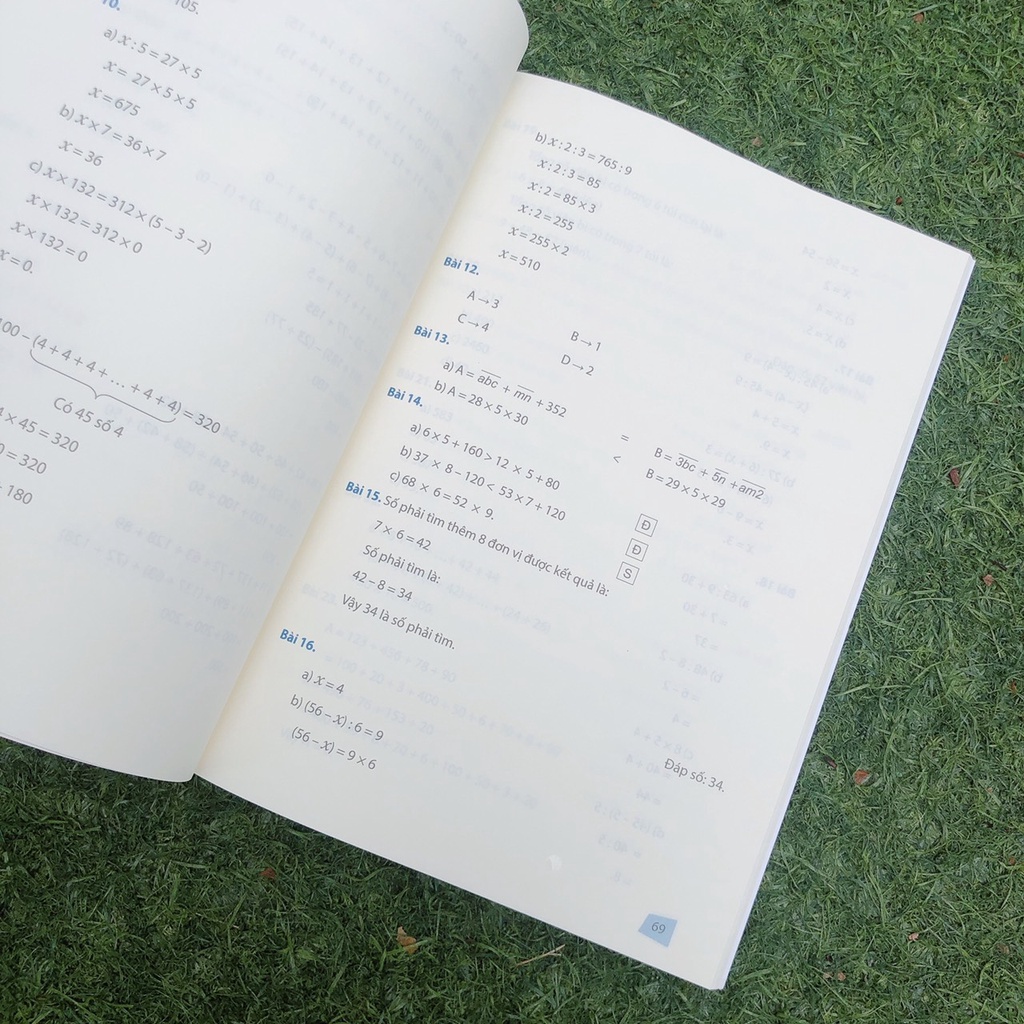 10.
105.
a) x : 5 = 27 × 5
x = 27 × 5 × 5
x = 675
b) x × 7 = 36 × 7
x = 36
c) x × 132 = 312 × (5 – 3 – 2)
x × 132 = 312 × 0
x × 132 = 0
x = 0.
100 – (4 + 4 + 4 + ... + 4 + 4) = 320
Có 45 số 4
4 × 45 = 320
0 = 320
180
b) x : 2 : 3 = 765 : 9
x : 2 : 3 = 85
x : 2 = 85 × 3
x : 2 = 255
x = 255 × 2
x = 510
Bài 12.
A → 3 B → 1
C → 4 D → 2
Bài 13.
a) A = a̅b̅c̅ + m̅n̅ + 352 = B = 3̅b̅c̅ + 5̅n̅ + a̅m̅2̅
b) A = 28 × 5 × 30 < B = 29 × 5 × 29
Bài 14.
a) 6 × 5 + 160 > 12 × 5 + 80 Đ
b) 37 × 8 – 120 < 53 × 7 + 120 Đ
c) 68 × 6 = 52 × 9. S
Bài 15. Số phải tìm thêm 8 đơn vị được kết quả là:
7 × 6 = 42
Số phải tìm là:
42 – 8 = 34
Vậy 34 là số phải tìm.
Đáp số: 34.
Bài 16.
a) x = 4
b) (56 – x) : 6 = 9
(56 – x) = 9 × 6
69